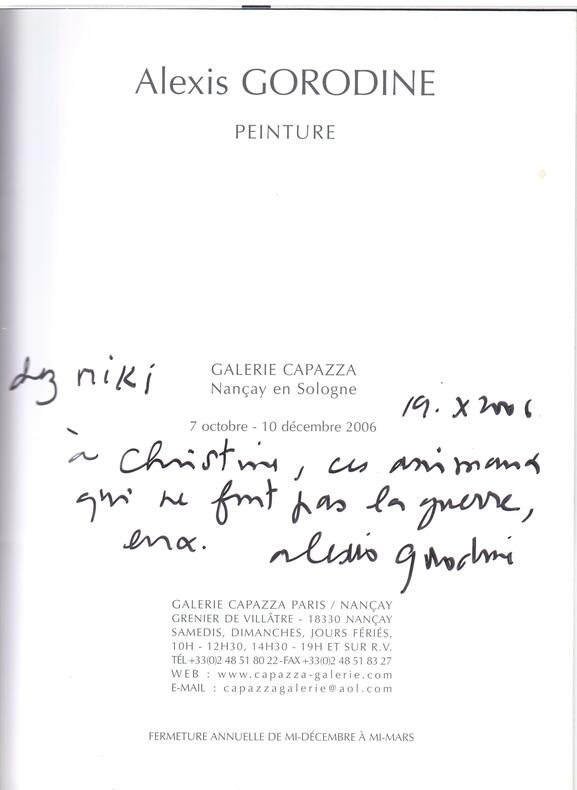 Alexis GORODINE
PEINTURE
chez niki
GALERIE CAPAZZA
Nançay en Sologne
19. X 2006
7 octobre - 10 décembre 2006
à Christine, ces animaux
qui ne font pas la guerre,
eux. alexis gorodine
GALERIE CAPAZZA PARIS / NANÇAY
GRENIER DE VILLÂTRE - 18330 NANÇAY
SAMEDIS, DIMANCHES, JOURS FÉRIÉS,
10H - 12H30, 14H30 - 19H ET SUR R.V.
TÉL +33(0)2 48 51 80 22 - FAX +33(0)2 48 51 83 27
WEB : www.capazza-galerie.com
E-MAIL : capazzagalerie@aol.com
FERMETURE ANNUELLE DE MI-DÉCEMBRE À MI-MARS